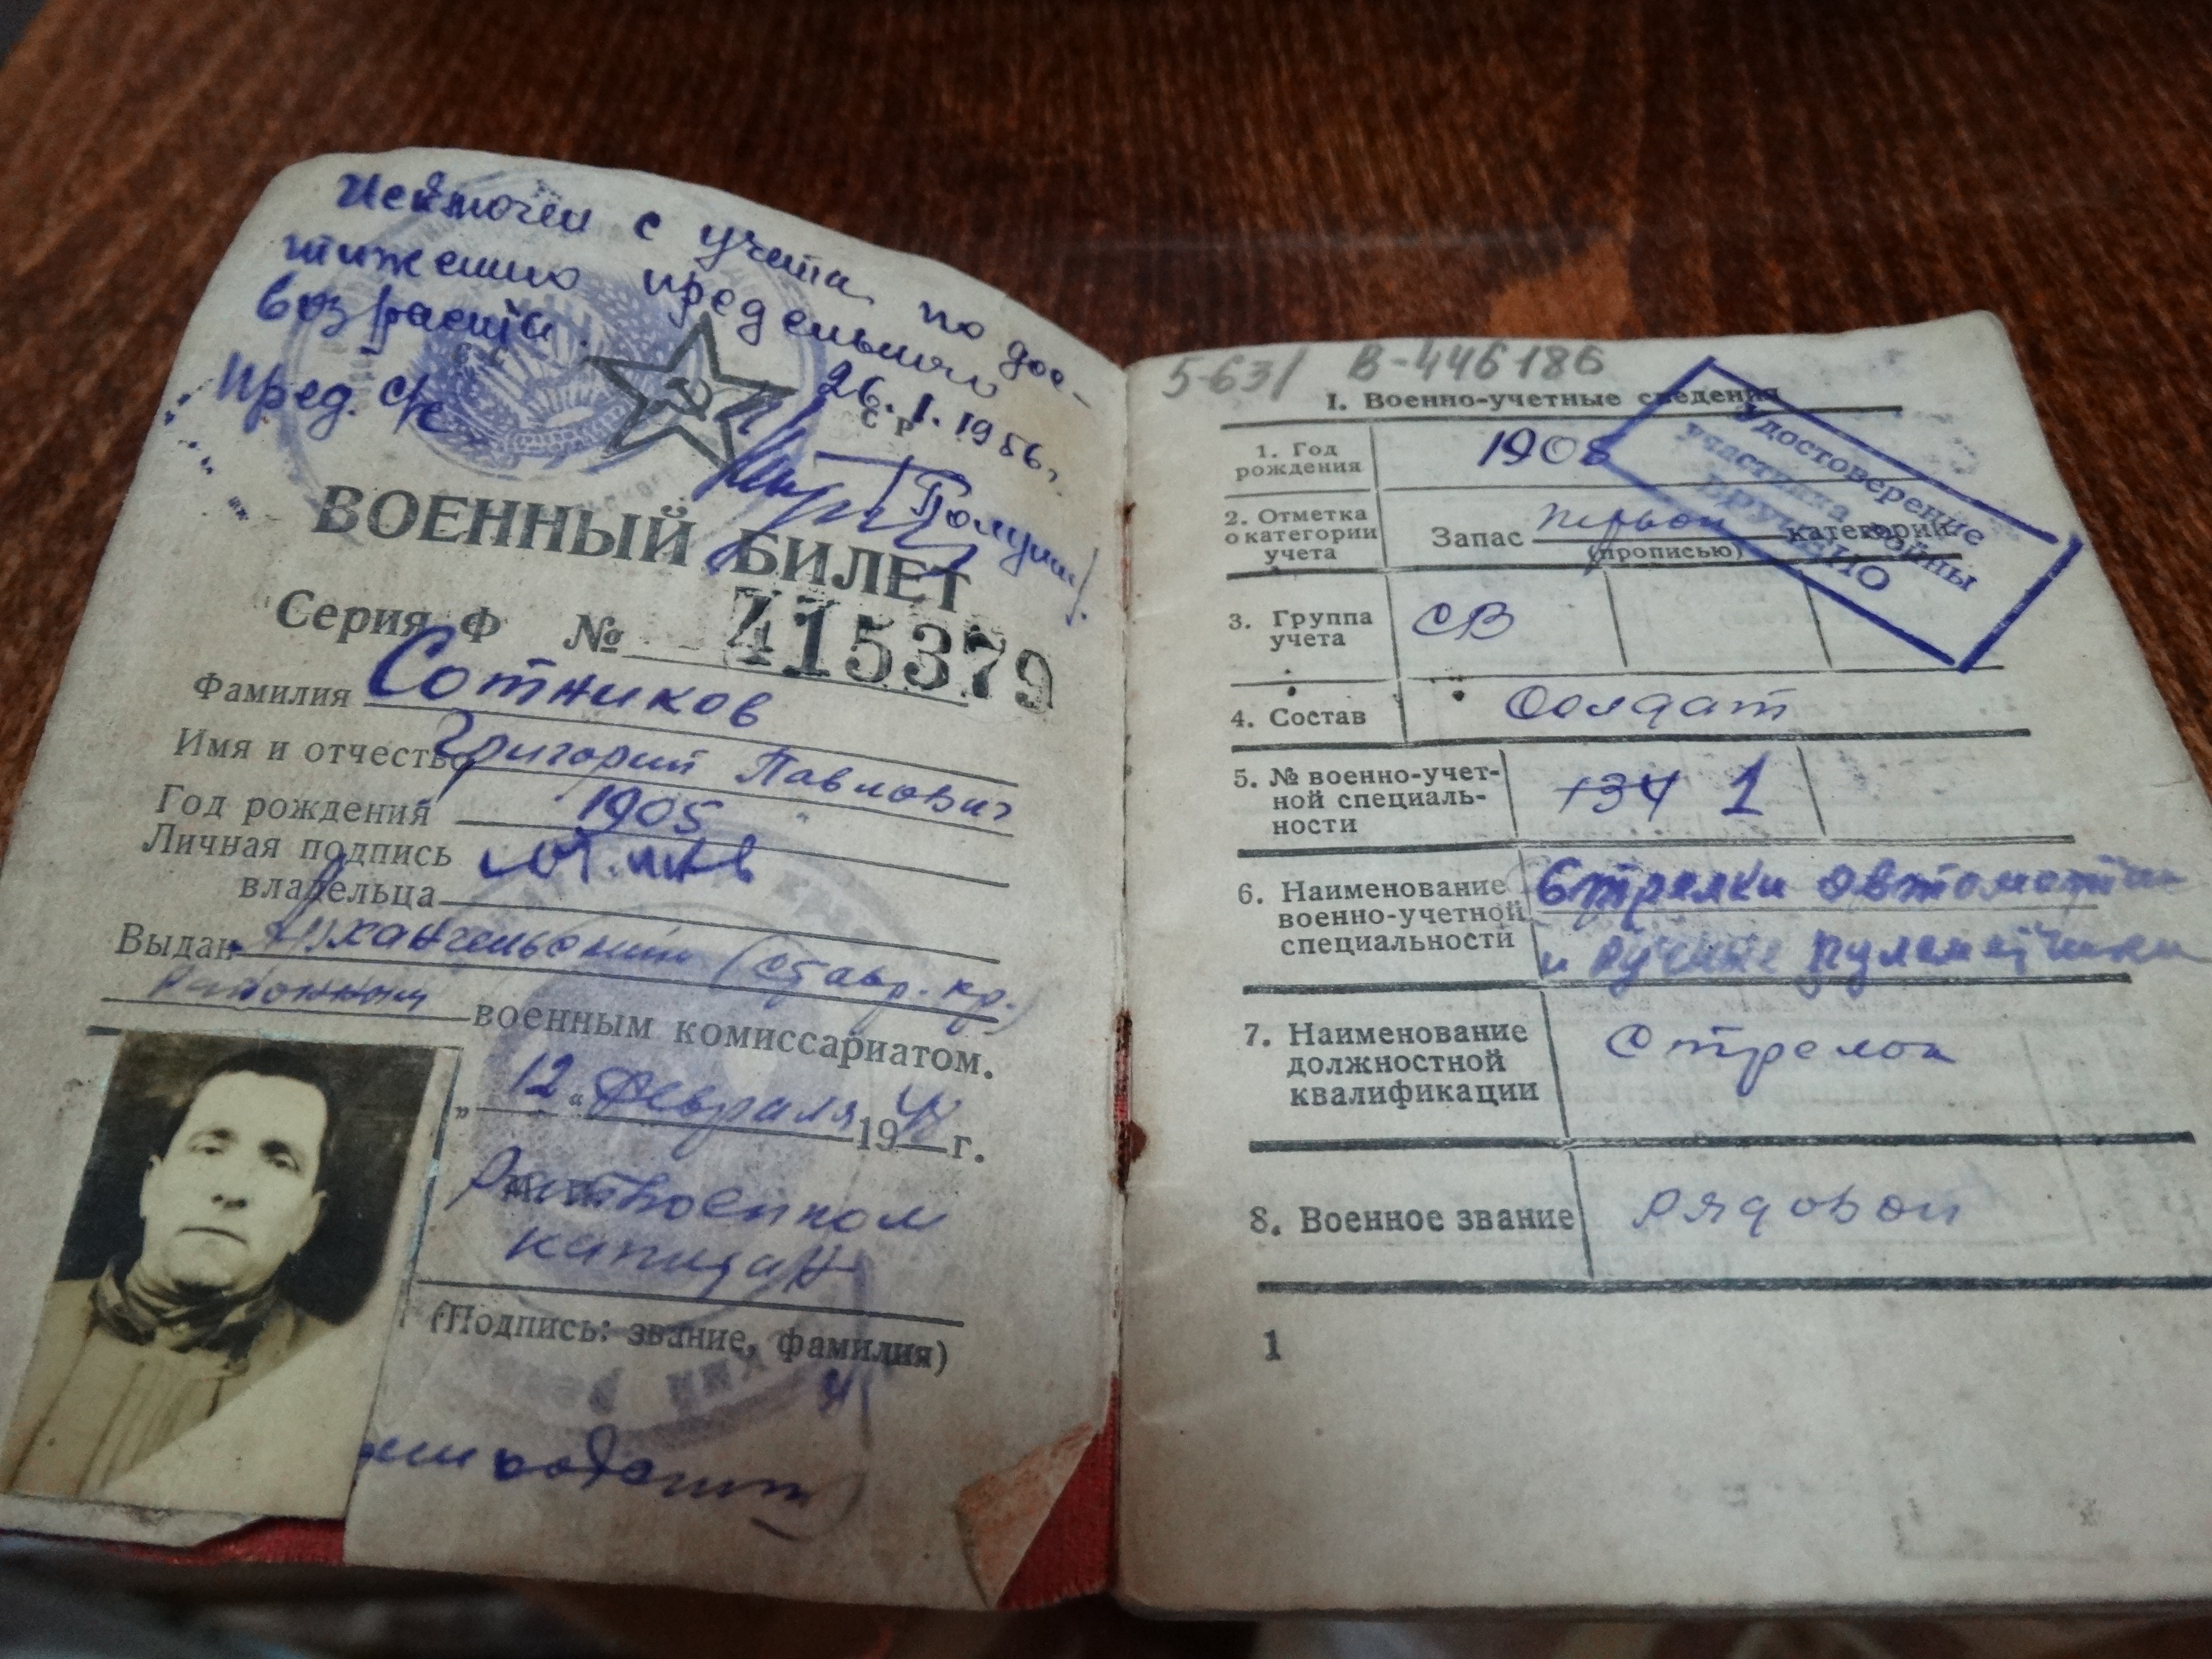 Исключен с учета по дос-
тижению предельного
возраста.
Пред. с/с
26.1.1956г.
ВОЕННЫЙ БИЛЕТ
Серия Ф № 415379
Фамилия Сотников
Имя и отчество Григорий Павлович
Год рождения 1905
Личная подпись
владельца
Выдан (Ставр. кр.)
Районным военным комиссариатом.
„ 12 “ Февраля 19 г.
Райвоенком
капитан
(Подпись: звание, фамилия)
5-631 В-446186
I. Военно-учетные сведения
Удостоверение
участника войны
ВРУЧЕНО
1. Год рождения 1905
2. Отметка о категории учета Запас первой категории
(прописью)
3. Группа учета СВ
4. Состав Солдат
5. № военно-учет-
ной специаль-
ности 134 1
6. Наименование Стрелки автоматчики
военно-учетной
специальности и ручные пулеметчики
7. Наименование
должностной
квалификации Стрелок
8. Военное звание рядовой
1